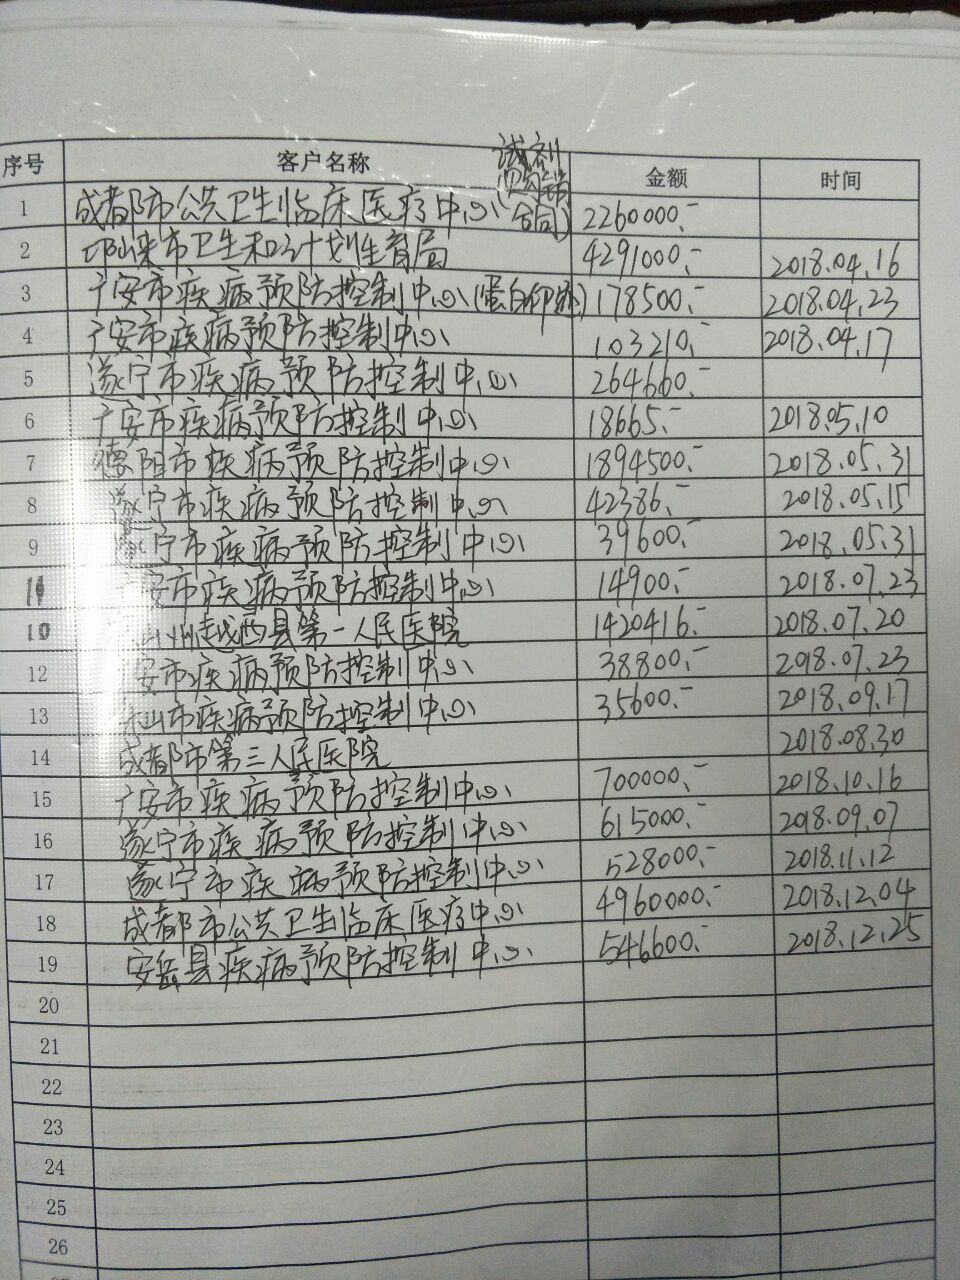 序号 客户名称 金额 时间
试剂
合同)
1 成都市公共卫生临床医疗中心 2260000.-
2 邛崃市卫生和计划生育局 4291000.- 2018.04.16
3 广安市疾病预防控制中心(蛋白印迹) 178500.- 2018.04.23
4 广安市疾病预防控制中心 103210.- 2018.04.17
5 遂宁市疾病预防控制中心 264660.-
6 广安市疾病预防控制中心 18665.- 2018.05.10
7 德阳市疾病预防控制中心 1894500.- 2018.05.31
8 遂宁市疾病预防控制中心 42386.- 2018.05.15
9 遂宁市疾病预防控制中心 39600.- 2018.05.31
11 安市疾病预防控制中心 14900.- 2018.07.23
10 州越西县第一人民医院 1420416.- 2018.07.20
12 安市疾病预防控制中心 38800.- 2018.07.23
13 山市疾病预防控制中心 35600.- 2018.09.17
14 成都市第三人民医院 2018.08.30
15 广安市疾病预防控制中心 700000.- 2018.10.16
16 遂宁市疾病预防控制中心 615000.- 2018.09.07
17 遂宁市疾病预防控制中心 528000.- 2018.11.12
18 成都市公共卫生临床医疗中心 4960000.- 2018.12.04
19 安岳县疾病预防控制中心 546600.- 2018.12.25
20
21
22
23
24
25
26